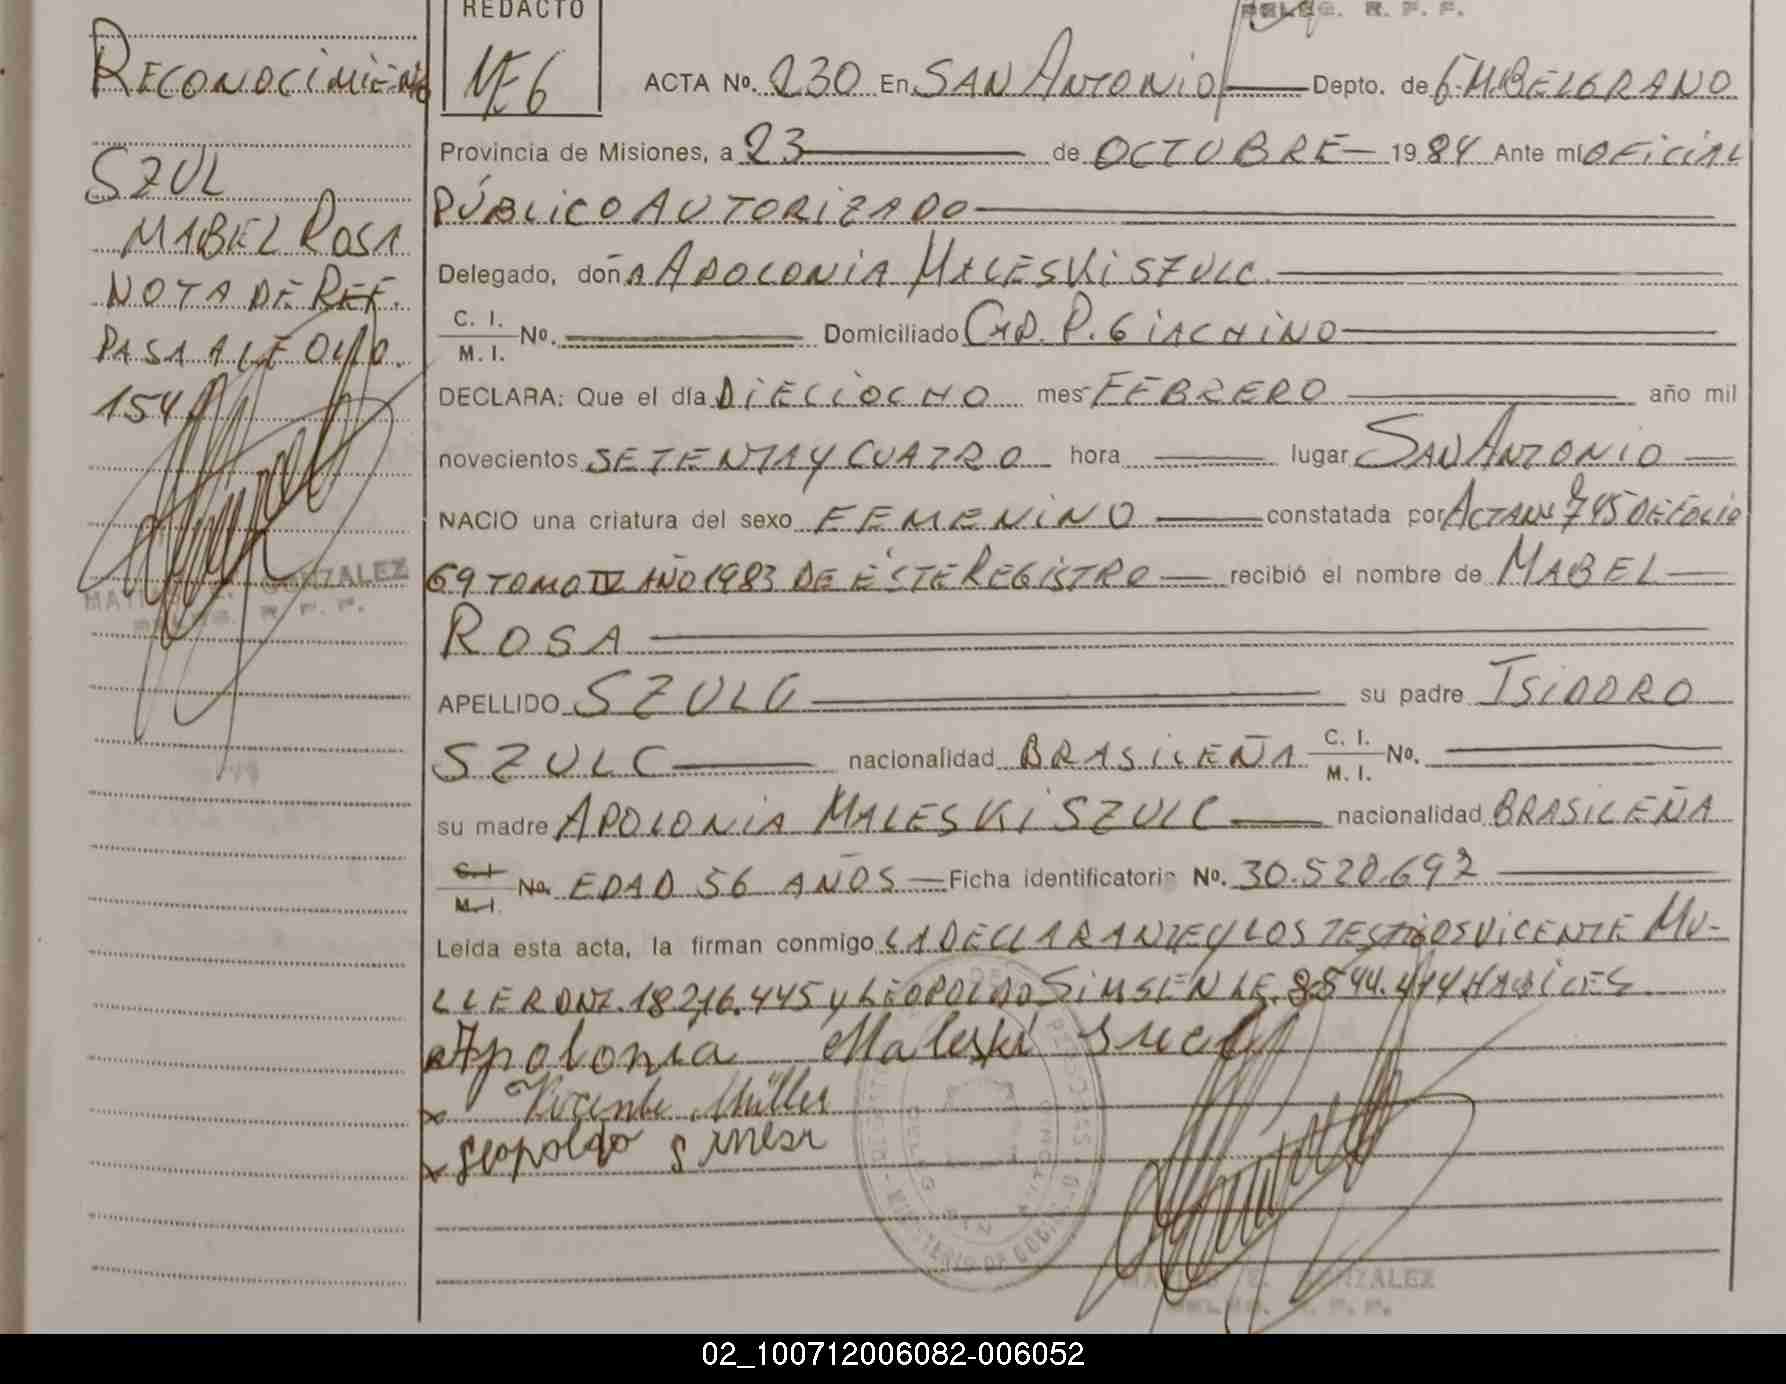 RECONOCIMIENTO
SZUL
MABEL ROSA
NOTA DE REF.
PASA AL FOLIO
154
GONZALEZ
DELEG. R. P. P.
REDACTO
ME6
DELEG. R. P. P.
ACTA No. 230 En SAN ANTONIO Depto. de G.M.BELGRANO
Provincia de Misiones, a 23 de OCTUBRE 1984 Ante mí OFICIAL
PÚBLICO AUTORIZADO
Delegado, doña APOLONIA MALESKI SZULC
C. I.
M. I. No. Domiciliado CAP. P. GIACHINO
DECLARA: Que el día DIECIOCHO mes FEBRERO año mil
novecientos SETENTA Y CUATRO hora lugar SAN ANTONIO
NACIO una criatura del sexo FEMENINO constatada por ACTA Nº 745 DE FOLIO
69 TOMO IV AÑO 1983 DE ÉSTE REGISTRO recibió el nombre de MABEL
ROSA
APELLIDO SZULC su padre ISIDORO
SZULC nacionalidad BRASILEÑA C. I. M. I. No.
su madre APOLONIA MALESKI SZULC nacionalidad BRASILEÑA
C. I. M. I. No. EDAD 56 AÑOS Ficha identificatoria No. 30.520.692
Leída esta acta, la firman conmigo LA DECLARANTE Y LOS TESTIGOS VICENTE MU-
LLER DNI. 18.216.445 y LEOPOLDO SIMSEN LE. 8.544.414 HABILES
Apolonia Maleski
x Vicente Müller
x Leopoldo
MINISTERIO DE GOBIERNO
GONZALEZ
DELEG. R. P. P.
02_100712006082-006052